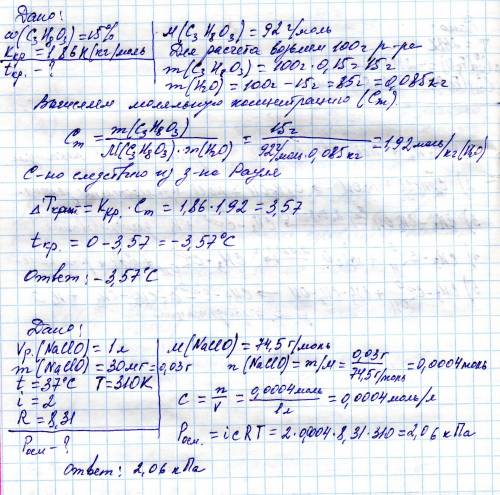 Дано:
ω(C₃H₈O₃) = 15%
Kкр = 1,86 К·кг/моль
tкр. - ?
M(C₃H₈O₃) = 92 г/моль
Для расчета возьмем 100г р-ра
m(C₃H₈O₃) = 100г · 0,15 = 15г
m(H₂O) = 100г - 15г = 85г = 0,085кг
Вычисляем моляльную концентрацию (Cm)
Cm = m(C₃H₈O₃) / M(C₃H₈O₃) · m(H₂O) = 15г / 92г/моль · 0,085кг = 1,92 моль/кг(H₂O)
С-но следствию из з-на Рауля
ΔTкрист = Kкр. · Cm = 1,86 · 1,92 = 3,57
tкр. = 0 - 3,57 = -3,57°C
Ответ: -3,57°C
Дано:
Vр.(NaClO) = 1л
m(NaClO) = 30мг = 0,03г
t = 37°C T = 310K
i = 2
R = 8,31
Pосм - ?
M(NaClO) = 74,5г/моль
n(NaClO) = m/M = 0,03г / 74,5г/моль = 0,0004моль
C = n/V = 0,0004моль / 1л = 0,0004моль/л
Pосм. = icRT = 2 · 0,0004 · 8,31 · 310 = 2,06 кПа
Ответ: 2,06 кПа